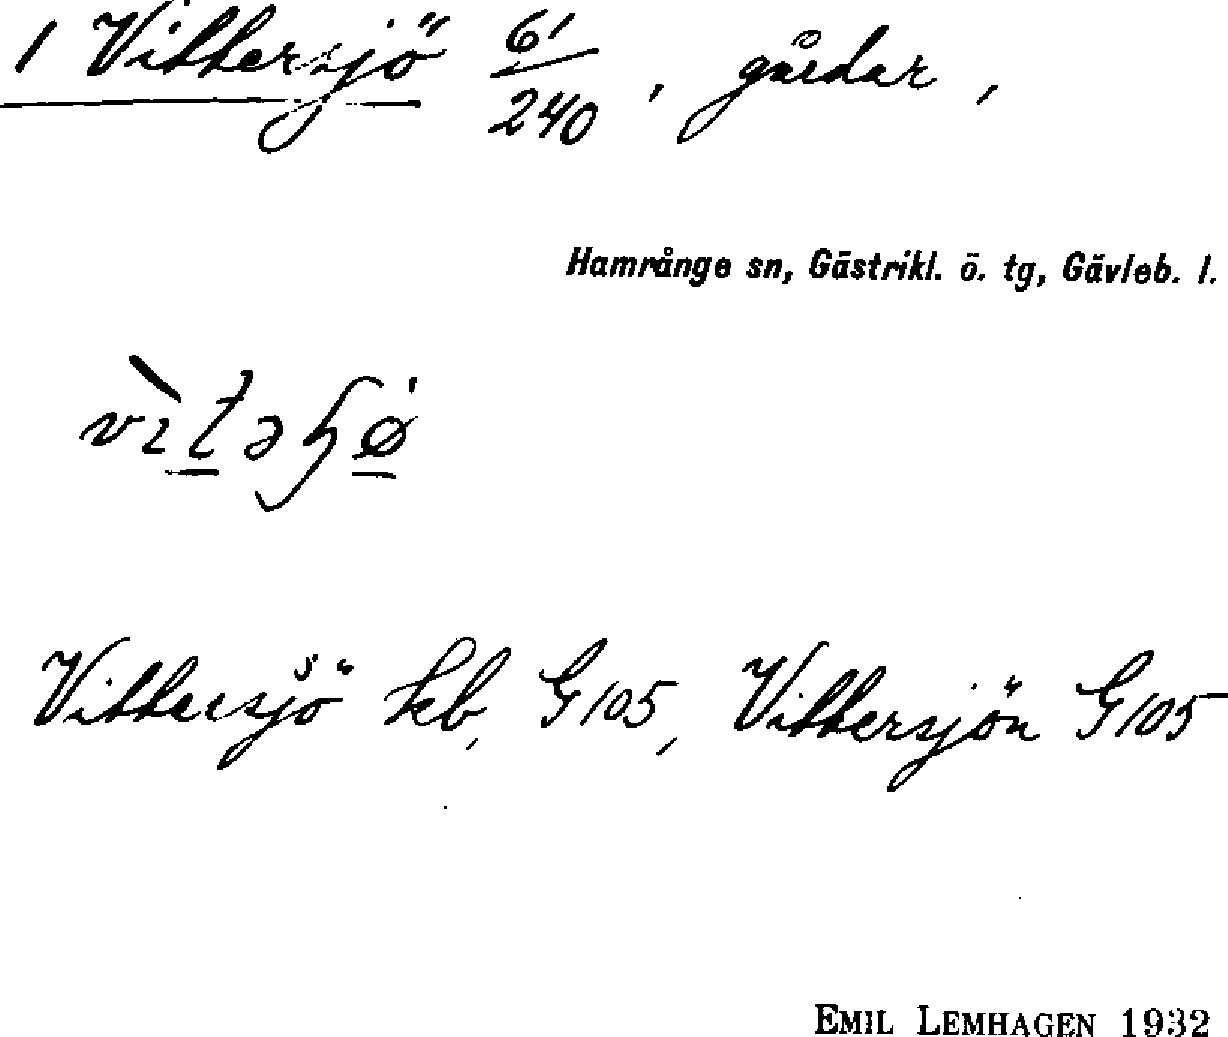 1 Vittersjö 61/240, gårdar,
Hamrånge sn, Gästrikl. ö. tg, Gävleb. l.
Vittersjö kb, G105, Vittersjön G105
EMIL LEMHAGEN 1932